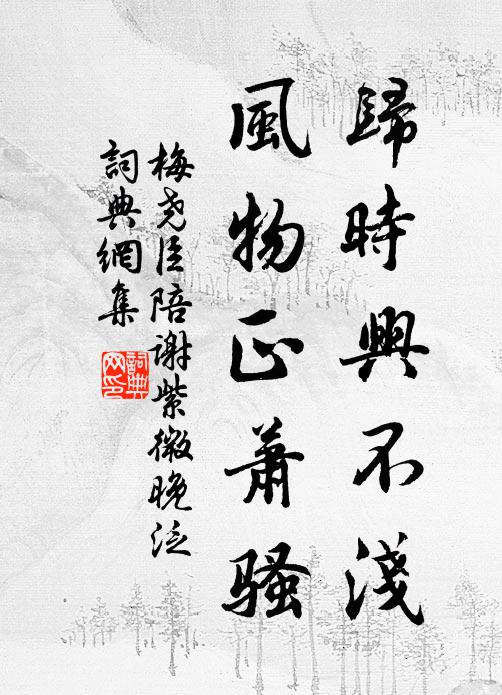 歸時興不淺
風物正蕭騷
梅堯臣陪謝紫微晚泛
詞典網集
詞典网印